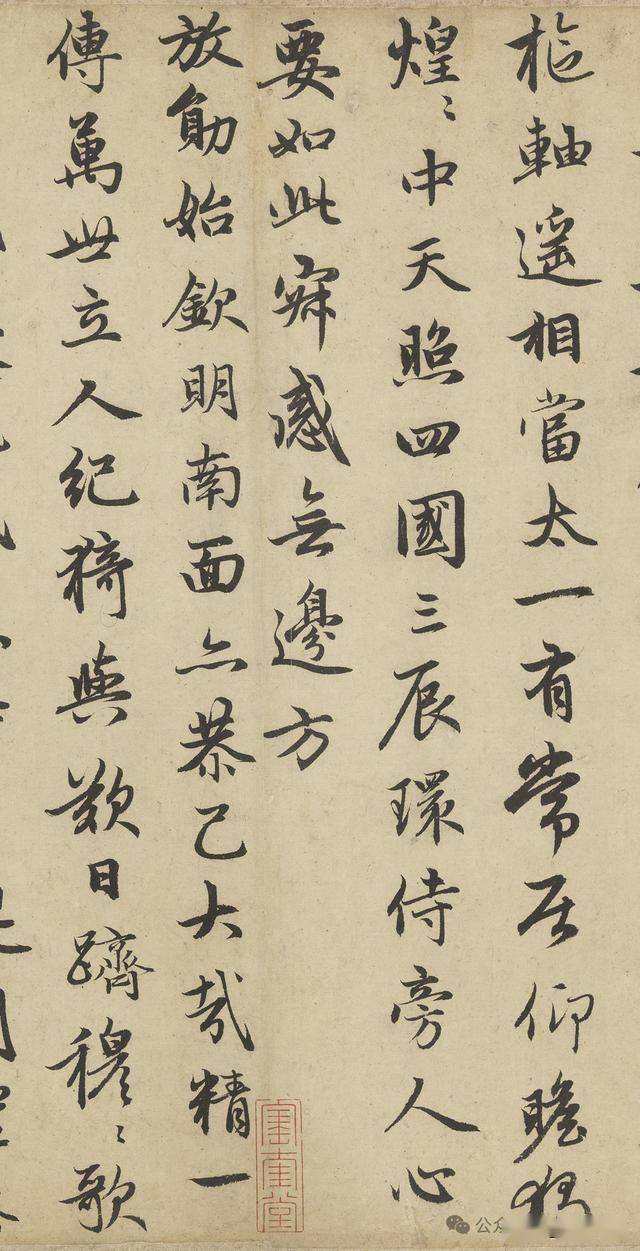 枢軸遥相當太一有常居仰瞻独
煌〻中天照四國三辰環侍旁人心
要如此寂感無邊方
放勛始欽明南面亦恭己大哉精一
傳萬世立人紀猗與歎日躋穆〻歌
公众